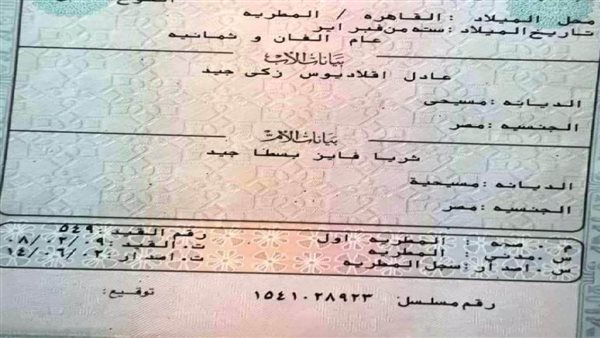 النوع
محل الميلاد : القاهره / المطريه
تاريخ الميلاد : سته من فبراير
عام الفان و ثمانيه
بيانات الأب
عادل اقلاديوس زكى جيد
الديانه : مسيحى
الجنسيه : مصر
بيانات الأم
ثريا فايز بسطا جيد
الديانه : مسيحية
الجنسيه : مصر
م . صحه : المطريه اول رقم القيد : ٥٤٩
س . مدنى : المطريه ت . القيد : ٠٨/٠٢/٠٩
س . اصدار : سجل المطريه ت . اصدار : ١٤/٠٦/٠٢
رقم مسلسل : ١٥٤١٠٢٨٩٢٣ توقيع :